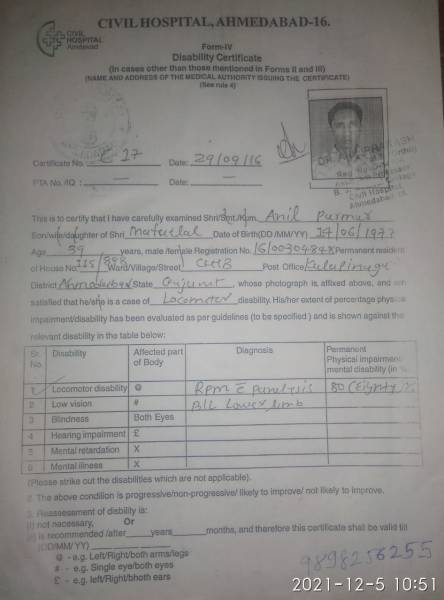 CIVIL HOSPITAL, AHMEDABAD-16.
CIVIL
HOSPITAL
Amdavad
Form-IV
Disability Certificate
(In cases other than those mentioned in Forms II and III)
(NAME AND ADDRESS OF THE MEDICAL AUTHORITY ISSUING THE CERTIFICATE)
(See rule 4)
Certificate No. 17 Date: 29/09/16
Civil Hospital
Ahmedabad
PTA No./IQ : — Date: —
This is to certify that I have carefully examined Shri/Smt./Kum. Anil Parmar
Son/wife/daughter of Shri Mafatlal Date of Birth(DD /MM/YY) 17/06/1977
Age 39 years, male /female Registration No. 16/00304848 Permanent resident
of House No. 115/898 Ward/Village/Street CHHB Post Office
District Ahmedabad State Gujarat whose photograph is affixed above, and am
satisfied that he/she is a case of Locomotor disability. His/her extent of percentage physical
impairment/disability has been evaluated as per guidelines (to be specified ) and is shown against the
relevant disability in the table below:
Sr. No. Disability Affected part of Body Diagnosis Permanent Physical impairment/ mental disability (in %)
1 Locomotor disability @ RPM c paralysis B/L Lower limb 80 (Eighty) %
2 Low vision #
3 Blindness Both Eyes
4 Hearing impairment £
5 Mental retardation X
6 Mental illness X
(Please strike out the disabilities which are not applicable).
2. The above condition is progressive/non-progressive/ likely to improve/ not likely to improve.
3. Reassessment of disbility is:
(i) not necessary, Or
(ii) is recommended /after years months, and therefore this certificate shall be valid till
(DD/MM/ YY)
@ - e.g. Left/Right/both arms/legs
# - e.g. Single eye/both eyes
£ - e.g. left/Right/bhoth ears
9898256255
2021-12-5 10:51